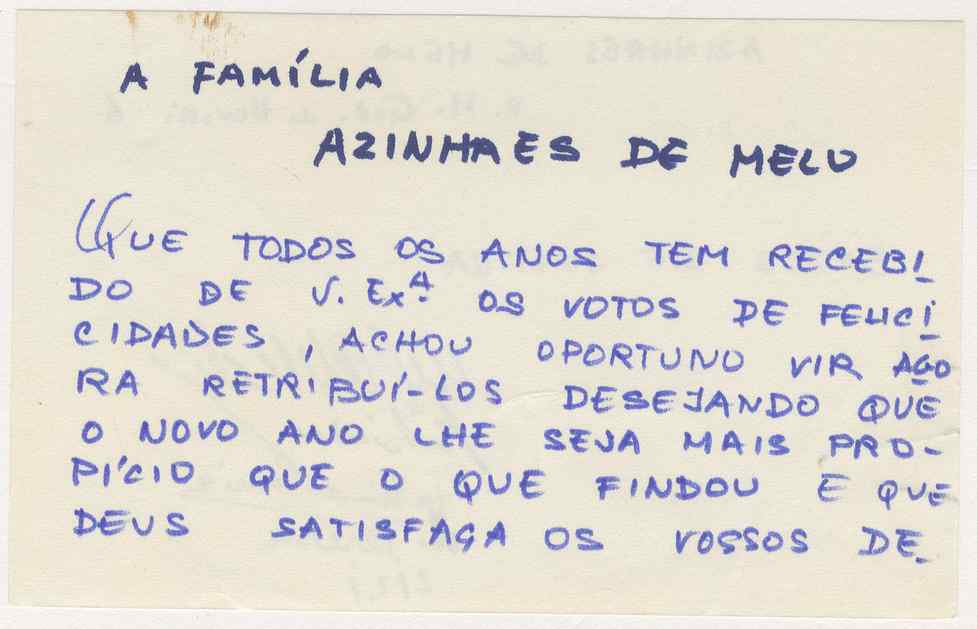 A FAMÍLIA
AZINHAES DE MELO
(QUE TODOS OS ANOS TEM RECEBI
DO DE V. EXA. OS VOTOS DE FELICI
CIDADES, ACHOU OPORTUNO VIR AGO
RA RETRIBUÍ-LOS DESEJANDO QUE
O NOVO ANO LHE SEJA MAIS PRO-
PÍCIO QUE O QUE FINDOU E QUE
DEUS SATISFAÇA OS VOSSOS DE-